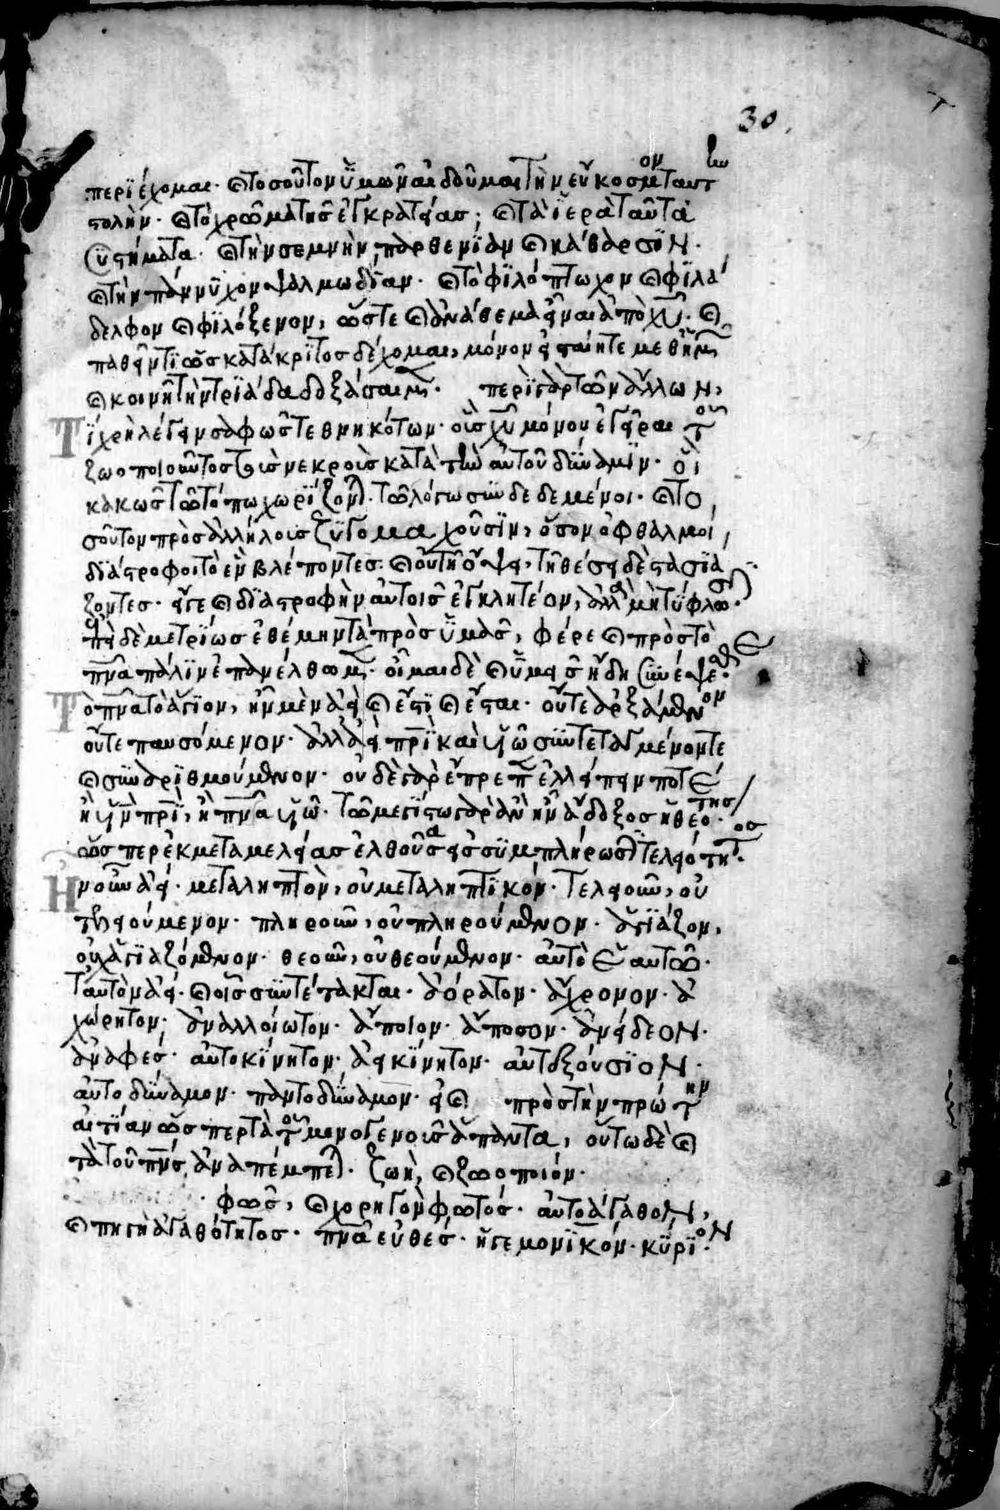 περϊέχομαι· καὶ τοσοῦτον ὑμῶν αἰδοῦμαι τὴν εὔκοσμον ταύτην
στολὴν· καὶ τὸ χρῶμα τῆς ἐγκρατείας· καὶ τὰ ϊερὰ ταῦτα
συστήματα· καὶ τὴν σεμνὴν παρθενϊαν καὶ κάθαρσϊν·
καὶ τὴν πάννυχον ψαλμωδΐαν· καὶ τὸ φϊλόπτωχον καὶ φϊλά
δελφον καὶ φϊλόξενον, ὥστε καὶ ἀνάθεμα εἶναι ἀπὸ χυ· καὶ
παθεῖν τϊ ὡς κατάκρϊτος δέχομαι, μόνον εἰ σταίητε μεθ' ἡμῶν
καὶ κοινῇ τὴν τρϊάδα δοξάσαιμεν· περὶ γὰρ τῶν ἄλλων,
Τΐ χρὴ λέγειν σαφῶς τεθνηκότων· οὓς χυ μόνου ἐγεῖραι τοῦ
ζωοποιοῦντος τοὺς νεκροὺς κατὰ τὴν αὐτοῦ δύναμϊν· οἳ
κακῶς τῶ τόπω χωρΐζονται· τῶ λόγω συνδεδεμένοι· καὶ το
σοῦτον πρὸς ἀλλήλους ζυγομαχοῦσϊν, ὅσον ὀφθαλμοὶ
δϊάστροφοι τὸ ἓν βλέποντες· καὶ οὐ τῆ ὄψει, τῆ θέσει δὲ στασϊά
ζοντες· εἴγε καὶ δϊαστροφὴν αὐτοῖς ἐγκλητέον, ἀλλὰ μὴ τύφλωσιν·
ἐπεὶ δὲ μετρΐως ἐθέμην τὰ πρὸς ὑμᾶς, φέρε καὶ πρὸς τὸ
πνα πάλϊν ἐπανέλθωμεν· οἶμαι δὲ καὶ ὑμεῖς ἤδη συνέψεσθε·
Τὸ πνα τὸ ἅγϊον, ἦν μὲν ἀεὶ καὶ ἔστϊ καὶ ἔσται· οὔτε ἀρξάμενον
οὔτε παυσόμενον· ἀλλ' ἀεὶ πρϊ καὶ υἱῶ συντεταγμένον τε
καὶ συναρϊθμούμενον· οὐδὲ γὰρ ἔπρεπεν ἐλλείπειν ποτὲ
ἢ υἱὸν πρϊ, ἢ πνα υἱῶ· τῶ μεγίστω γὰρ ἂν ἦν ἄδοξος ἡ θεότης
ὥσπερ ἐκ μεταμελείας ἐλθοῦσα εἰς συμπλήρωσϊν τελειότητος·
Ἦν οὖν ἀεὶ· μεταληπτὸν, οὐ μεταληπτϊκόν· τελειοῦν, οὐ
τελειούμενον· πληροῦν, οὐ πληρούμενον· ἁγϊάζον,
οὐχ ἁγϊαζόμενον· θεοῦν, οὐ θεούμενον· αὐτὸ ἑαυτῶ·
ταυτὸν ἀεὶ· καὶ οἷς συντέτακται· ἀόρατον· ἄχρονον· ἀ
χώρητον· ἀναλλοίωτον· ἄποιον· ἄποσον· ἀνείδεον·
ἀναφές· αὐτοκΐνητον· ἀεικΐνητον· αὐτεξούσϊον·
αὐτοδύναμον· παντοδύναμον· εἰ καὶ πρὸς τὴν πρώτην
αἰτΐαν ὥσπερ τὰ τοῦ μονογενοῦς ἅπαντα, οὕτω δὲ καὶ
τὰ τοῦ πνς ἀναπέμπεται· ζωὴ, καὶ ζωοποιόν·
φῶς, καὶ χορηγὸν φωτός· αὐτοάγαθον,
καὶ πηγὴ ἀγαθότητος· πνα εὐθές· ἡγεμονϊκόν· κύρϊον·